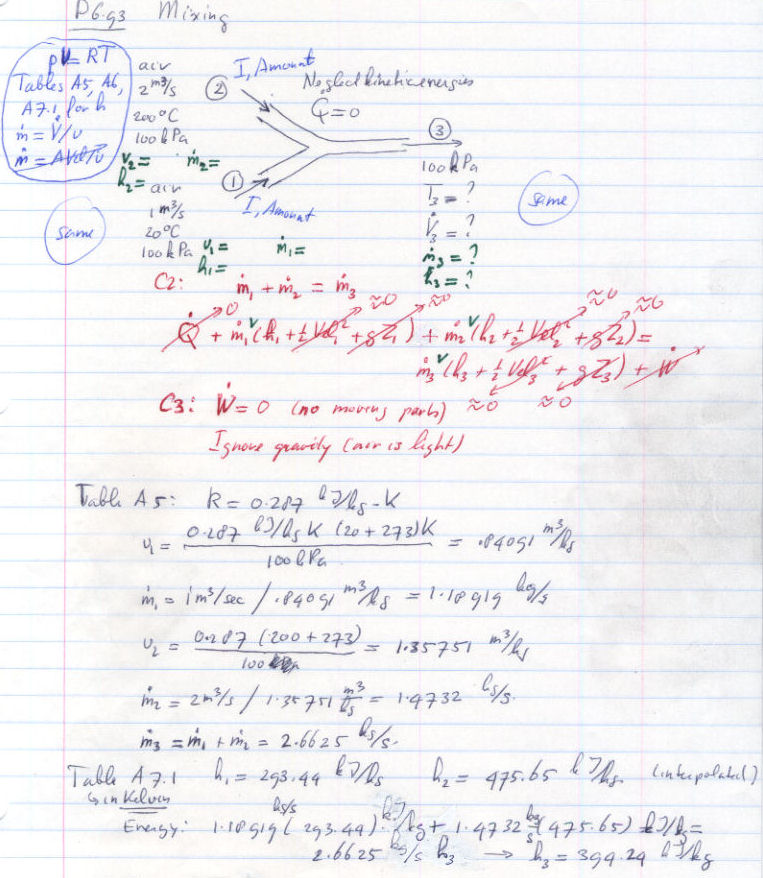 P6.93 Mixing
pV = RT
Tables A5, A6,
A7.1 for h
ṁ = V̇/v
ṁ = AVel/v
same
air
2 m³/s
200°C
100 kPa
v₂ = ṁ₂ =
h₂ =
② I, Amount
Neglect kinetic energies
Q̇ = 0
air
1 m³/s
20°C
100 kPa v₁ = ṁ₁ =
h₁ =
① I, Amount
③
100 kPa
T₃ = ?
V̇₃ = ?
ṁ₃ = ?
h₃ = ?
same
C2: ṁ₁ + ṁ₂ = ṁ₃
0 ≈0 ≈0 ≈0 ≈0
Q̇ + ṁ₁(h₁ + ½ Vel₁² + gZ₁) + ṁ₂(h₂ + ½ Vel₂² + gZ₂) =
ṁ₃(h₃ + ½ Vel₃² + gZ₃) + Ẇ
≈0 ≈0
C3: Ẇ = 0 (no moving parts)
Ignore gravity (air is light)
Table A5: R = 0.287 kJ/kg-K
v₁ = 0.287 kJ/kg K (20+273)K / 100 kPa = .84091 m³/kg
ṁ₁ = 1 m³/sec / .84091 m³/kg = 1.18919 kg/s
v₂ = 0.287 (200+273) / 100 = 1.35751 m³/kg
ṁ₂ = 2 m³/s / 1.35751 m³/kg = 1.4732 kg/s.
ṁ₃ = ṁ₁ + ṁ₂ = 2.6625 kg/s.
Table A7.1 h₁ = 293.44 kJ/kg h₂ = 475.65 kJ/kg. (interpolated)
↳ in Kelvin
Energy: 1.18919 kg/s (293.44) kJ/kg + 1.4732 kg/s (475.65) kJ/kg =
2.6625 kg/s h₃ → h₃ = 394.24 kJ/kg